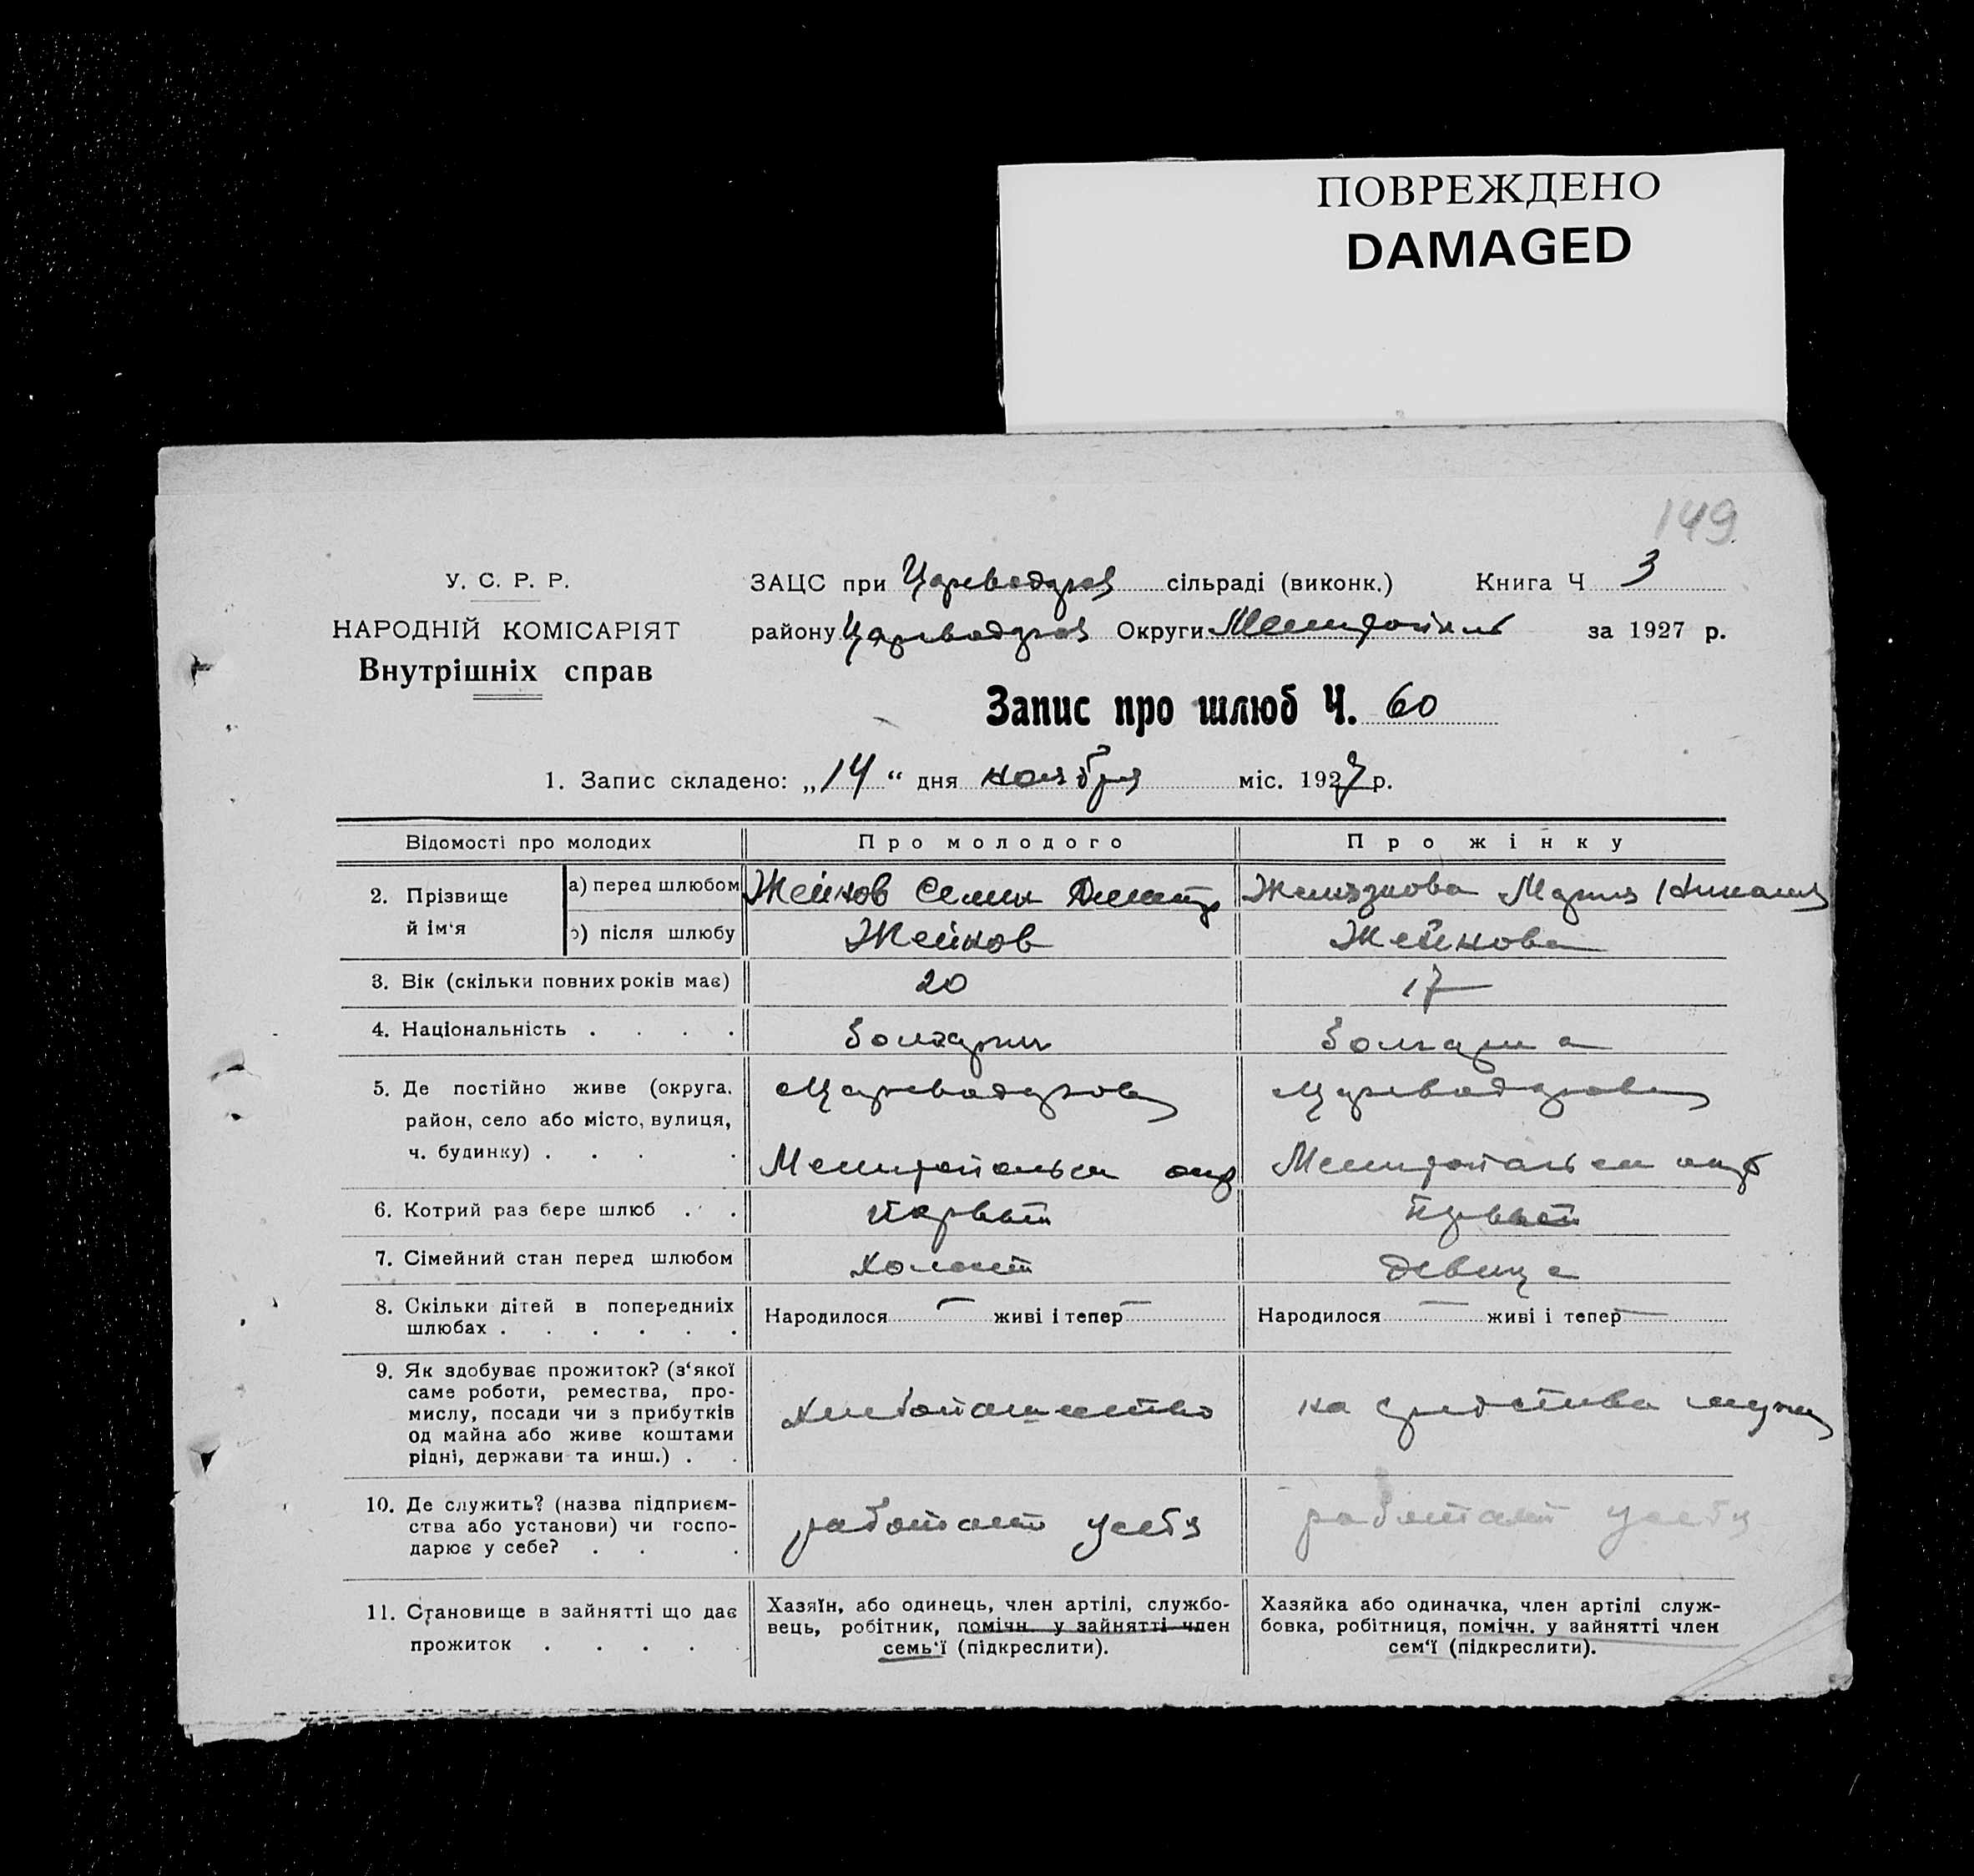 ПОВРЕЖДЕНО
DAMAGED
149
У. С. Р. Р.
НАРОДНІЙ КОМІСАРІЯТ
Внутрішніх справ
ЗАЦС при Цареводаров сільраді (виконк.) Книга Ч 3
району Цареводаров Округи Мелитополь за 1927 р.
Запис про шлюб Ч. 60
1. Запис складено: „14“ дня ноября міс. 1927 р.
Відомості про молодих Про молодого Про жінку
2. Прізвище й ім‘я
а) перед шлюбом Жейков Семен Дмитр Железнова Мария Никола
б) після шлюбу Жейков Жейкова
3. Вік (скільки повних років має) 20 17
4. Національність . . . . болгарин болгарка
5. Де постійно живе (округа, район, село або місто, вулиця, ч. будинку) . . . .
Мелитопольск окр Мелитопольск окр
6. Котрий раз бере шлюб . . первый первый
7. Сімейний стан перед шлюбом холост девица
8. Скільки дітей в попередніх шлюбах . . . . . . Народилося — живі і тепер — Народилося — живі і тепер —
9. Як здобуває прожиток? (з‘якої саме роботи, ремества, промислу, посади чи з прибутків од майна або живе коштами рідні, держави та инш.) . . хлебопашество на средства мужа
10. Де служить? (назва підприємства або установи) чи господарює у себе? . . . работает у себя работает у себя
11. Становище в зайнятті що дає прожиток . . . . .
Хазяїн, або одинець, член артілі, службовець, робітник, помічн. у зайнятті член семь‘ї (підкреслити).
Хазяйка або одиначка, член артілі службовка, робітниця, помічн. у зайнятті член сем‘ї (підкреслити).